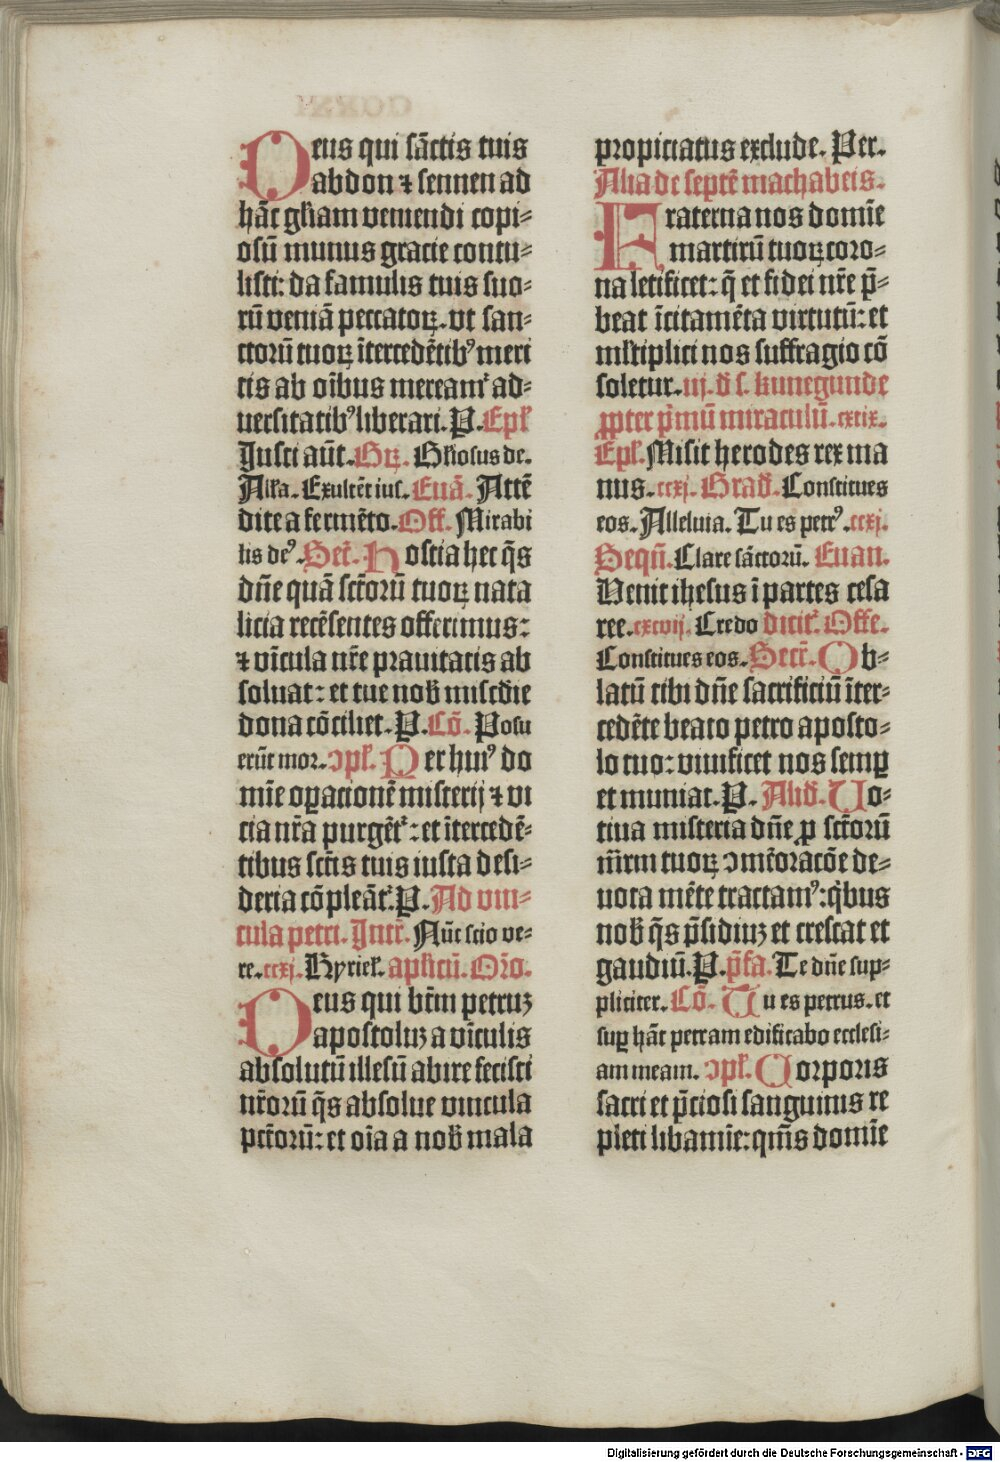 Deus qui sāctis tuis
abdon ⁊ sennen ad
hāc gl̄iam veniendi copi⸗
osū munus gracie contu⸗
listi: da famulis tuis suo⸗
rū veniā peccatoꝝ. vt san⸗
ctorū tuoꝝ ītercedētibꝰ meri
tis ab oībus mereamᷣ ad⸗
uersitatibꝰ liberari. P. Epl̄
Justi aūt. Gꝝ. Gl̄iosus de.
All̄a. Exultēt ius. Euā. Attē
dite a fermēto. Off. Mirabi
lis deꝰ. Secr̄. Hostia hec q̄s
dn̄e quā sc̄torū tuoꝝ nata
licia recēsentes offerimus:
⁊ vīcula nr̄e prauitatis ab
soluat: et tue nob̄ misc̄die
dona cōciliet. P. Cō. Posu
erūt mor. ↄpl̄. Per huiꝰ do
mīe oꝑacionē misterij ⁊ vi
cia nr̄a purgētᷣ: et ītercedē⸗
tibus sctīs tuis iusta desi⸗
deria cōpleātᷣ. P. Ad vin⸗
cula petri. Intr̄. Nūc scio ve⸗
re. ccxj. Kyriel̄. apl̄icū. Or̄o.
Deus qui bt̄m petruꝫ
apostoluꝫ a vīculis
absolutū illesū abire fecisti
nr̄orū q̄s absolue vincula
pct̄orū: et oīa a nob̄ mala
propiciatus exclude. Per.
Alia de septē machabeis.
Fraterna nos domīe
martirū tuoꝝ coro⸗
na letificet: q̄ et fidei nr̄e p̄⸗
beat īcitamēta virtutū: et
ml̄tiplici nos suffragio cō
soletur. iij. d̄ s. kunegunde
ꝓpter p̄mū miraculū. cxtix.
Epl̄. Misit herodes rex ma
nus. ccxj. Grad̄. Constitues
eos. Alleluia. Tu es petrꝰ. ccxj.
Seqū. Clare sāctorū. Euan.
Venit ihesus ī partes cesa
ree. cxcvij. Credo dicitᷣ. Offe.
Constitues eos. Secr̄. Ob⸗
latū tibi dn̄e sacrificiū īter⸗
cedēte beato petro aposto⸗
lo tuo: viuificet nos semꝑ
et muniat. P. Alid̄. Uo⸗
tiua misteria dn̄e ꝓ sc̄torū
mr̄m tuoꝝ ↄmēoracōe de⸗
uota mēte tractamꝰ: q̇bus
nob̄ q̄s p̄sidiuꝫ et crescat et
gaudiū. P. p̄fa. Te dn̄e sup⸗
pliciter. Cō. Tu es petrus. et
suꝑ hāc petram edificabo ecclesi⸗
am meam. ↄpl̄. Corporis
sacri et p̄ciosi sanguinis re
pleti libamīe: qm̄s domīe
Digitalisierung gefördert durch die Deutsche Forschungsgemeinschaft - DFG